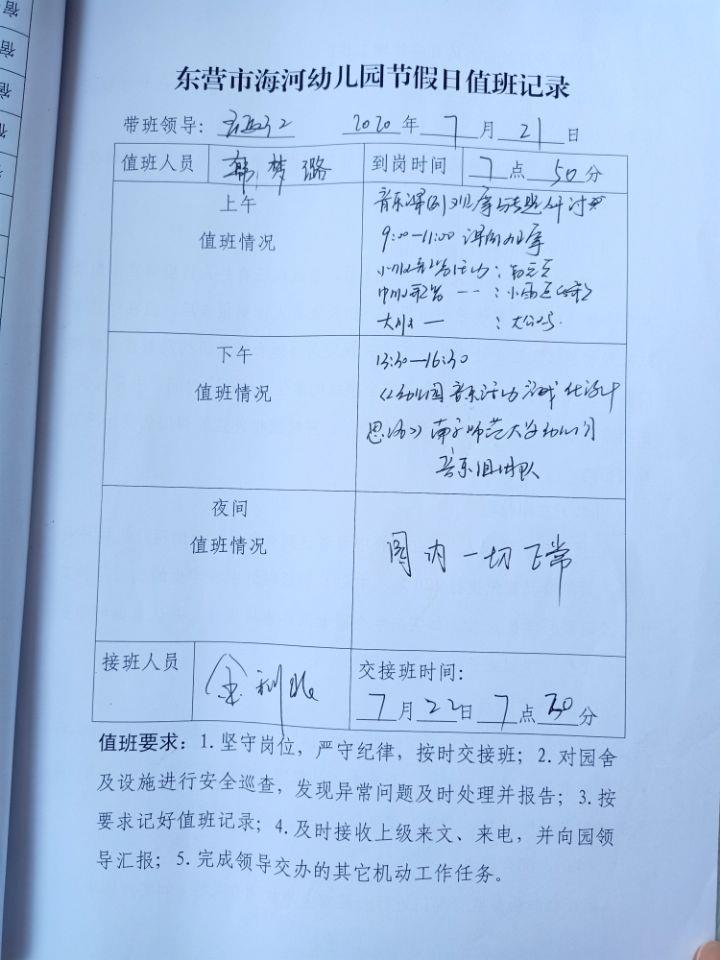 东营市海河幼儿园节假日值班记录
带班领导： 2020年7月21日
值班人员 韩梦璐 到岗时间 7点50分
上午
值班情况
音乐课例观摩与专题研讨
9:00—11:00 课例观摩
小班
中班
大班
下午
值班情况
13:30—16:30
《幼儿园音乐活动游戏化设计
思路》南京师范大学幼儿
音乐团队
夜间
值班情况
园内一切正常
接班人员 金利
交接班时间：
7月22日7点30分
值班要求：1.坚守岗位，严守纪律，按时交接班；2.对园舍
及设施进行安全巡查，发现异常问题及时处理并报告；3.按
要求记好值班记录；4.及时接收上级来文、来电，并向园领
导汇报；5.完成领导交办的其它机动工作任务。
宿
宿
宿